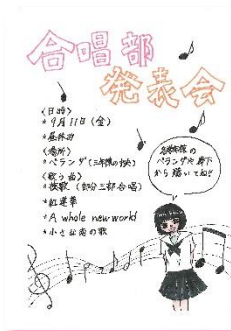 合唱部
発表会
〈日時〉
・9月11日(金)
・昼休み
〈場所〉
・ベランダ(三年棟の中央)
〈歌う曲〉
・校歌(部分三部合唱)
・紅蓮華
・A whole new world
・小さな恋の歌
ベランダや廊下
から聴いてね!!